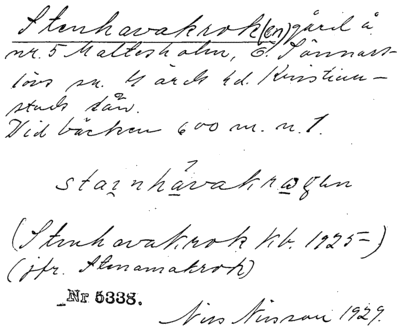 Stenhavakrok(en) gård å
nr. 5 Maltesholm, Ö. Sönnars-
lövs sn. Gärds hd. Kristian-
stads län.
Vid bäcken 600 m. n. 1.
stai̯nhávakrɷgen
(Stenhavakrok kb. 1925-)
(jfr. Stenamakrok)
Nr 5338.
Nils Nilsson 1929.